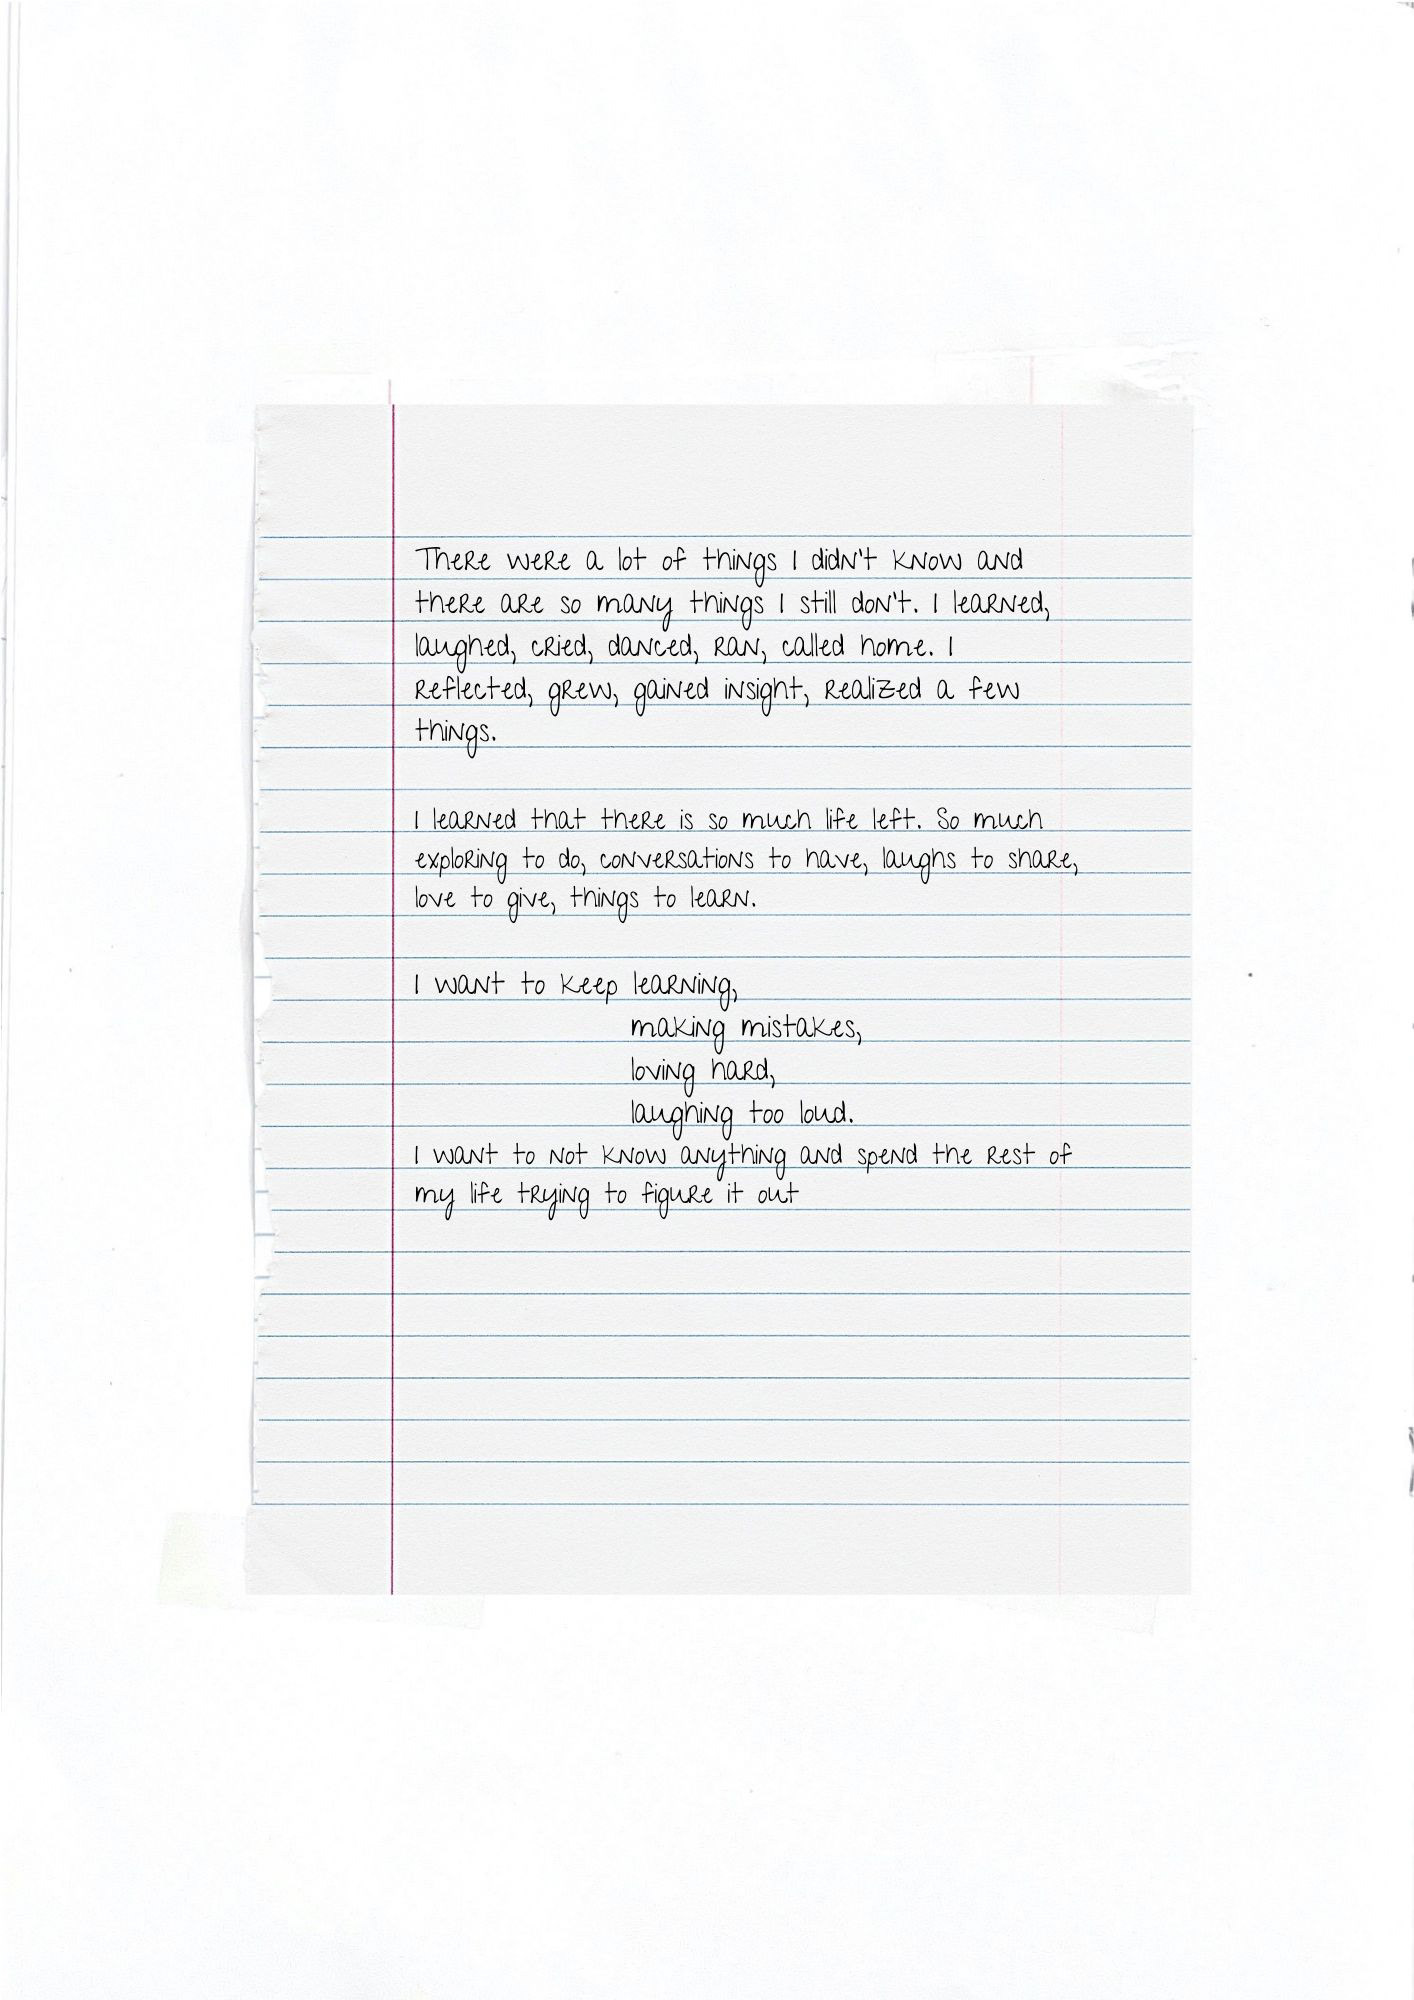 There were a lot of things I didn't know and
there are so many things I still don't. I learned,
laughed, cried, danced, ran, called home. I
reflected, grew, gained insight, realized a few
things.
I learned that there is so much life left. So much
exploring to do, conversations to have, laughs to share,
love to give, things to learn.
I want to keep learning,
making mistakes,
loving hard,
laughing too loud.
I want to not know anything and spend the rest of
my life trying to figure it out